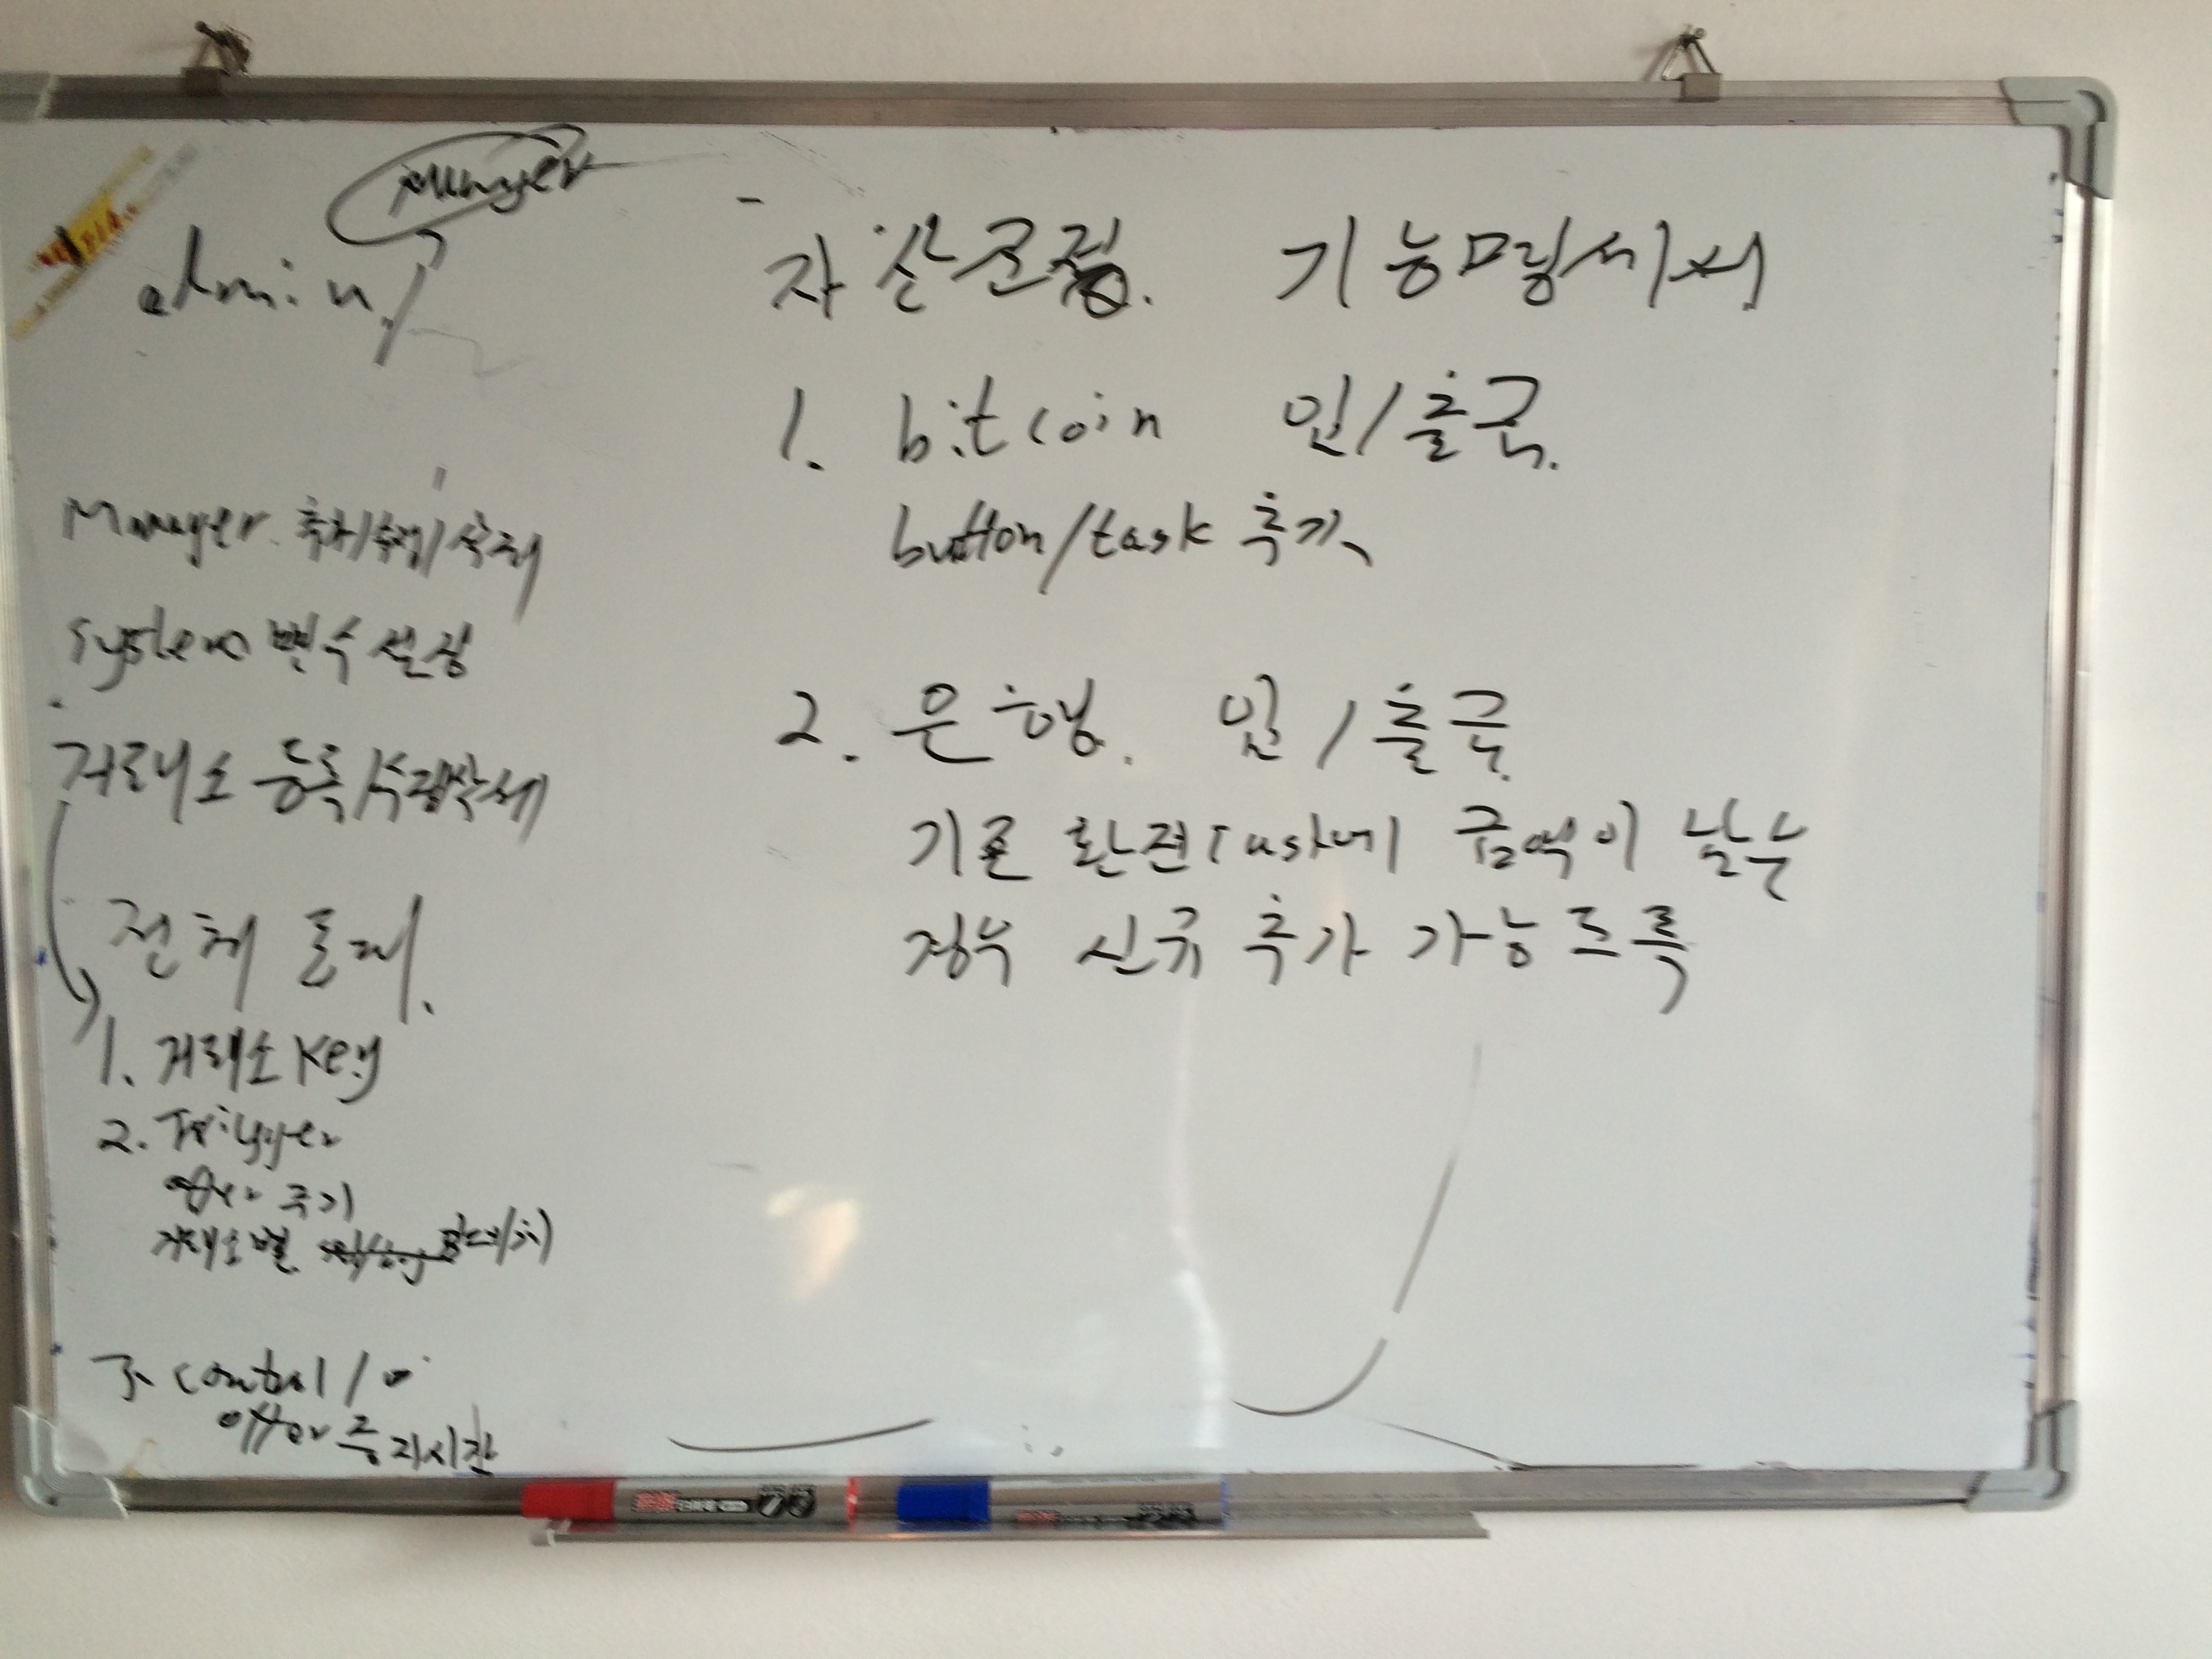 Manager
admin
Manager 추가/수정/삭제
system 변수 설정
거래소 등록/수정/삭제
전체 통제.
1. 거래소 key
2. Trigger
offer 주기
거래소별
3. control /
offer 중지시간
자산조정. 기능명세서
1. bitcoin 입/출금.
button/task 추가
2. 은행. 입/출금.
기존 환전 task에 금액이 남을
경우 신규 추가 가능토록